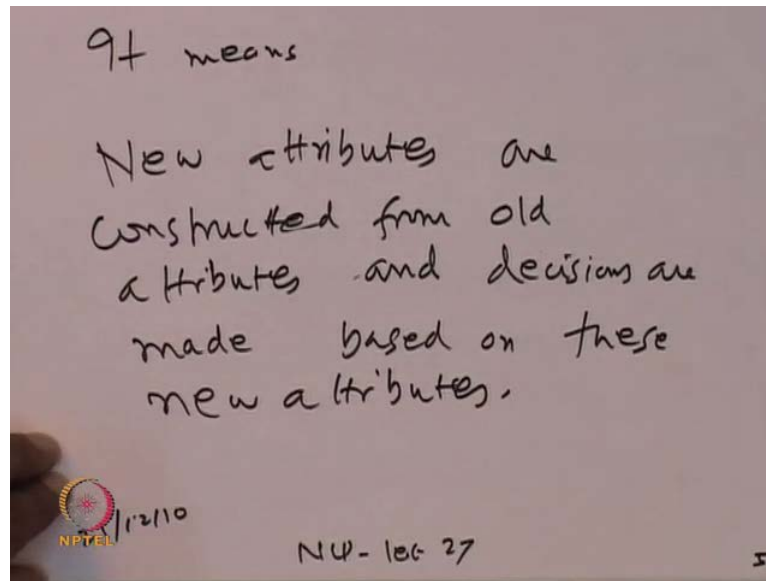 It means
New attributes are
constructed from old
attributes and decisions are
made based on these
new attributes.
/12/10
NPTEL
lec 27